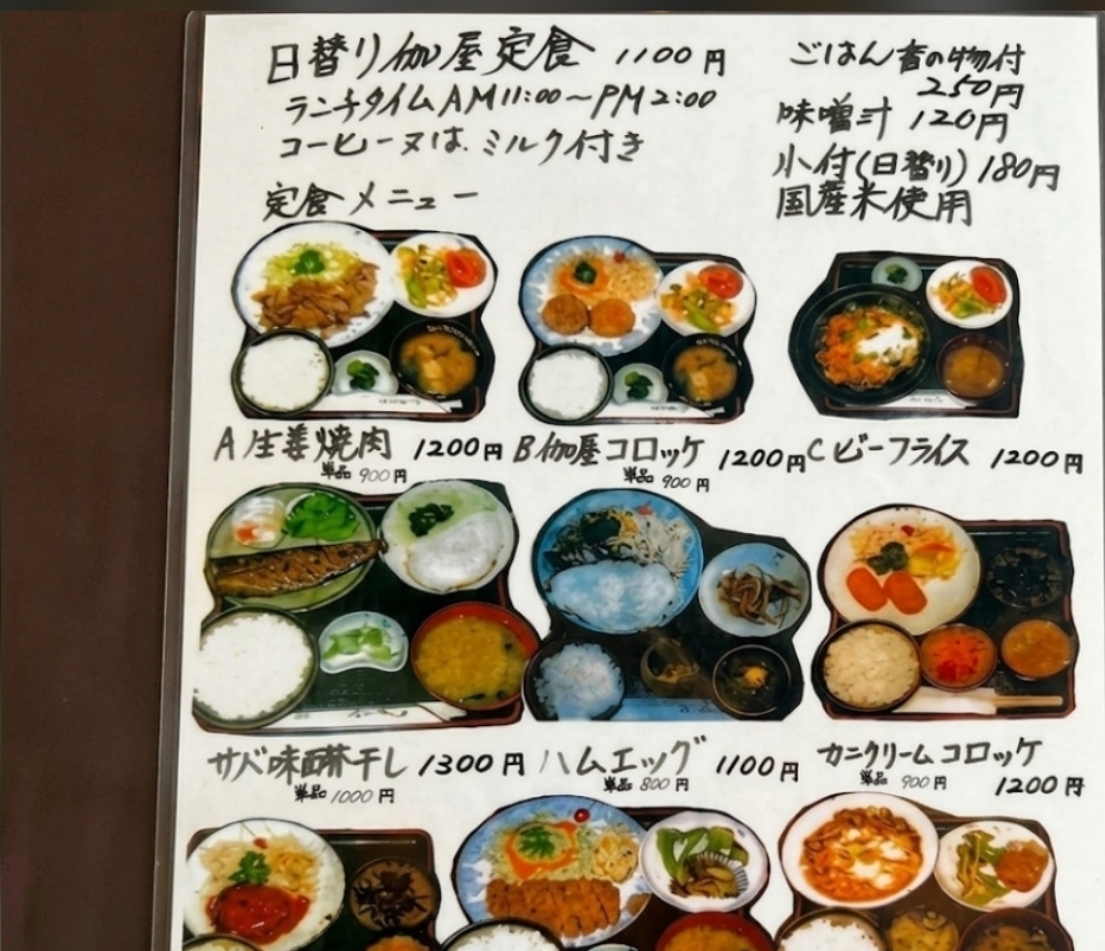 日替り伽屋定食 1100円
ランチタイムAM11:00〜PM2:00
コーヒーヌは、ミルク付き
ごはん香の物付
250円
味噌汁 120円
小付(日替り) 180円
国産米使用
定食メニュー
A 生姜焼肉 1200円
単品 900円
B 伽屋コロッケ 1200円
単品 900円
C ビーフライス 1200円
サバ味醂干し 1300円
単品 1000円
ハムエッグ 1100円
単品 800円
カニクリームコロッケ
単品 900円 1200円